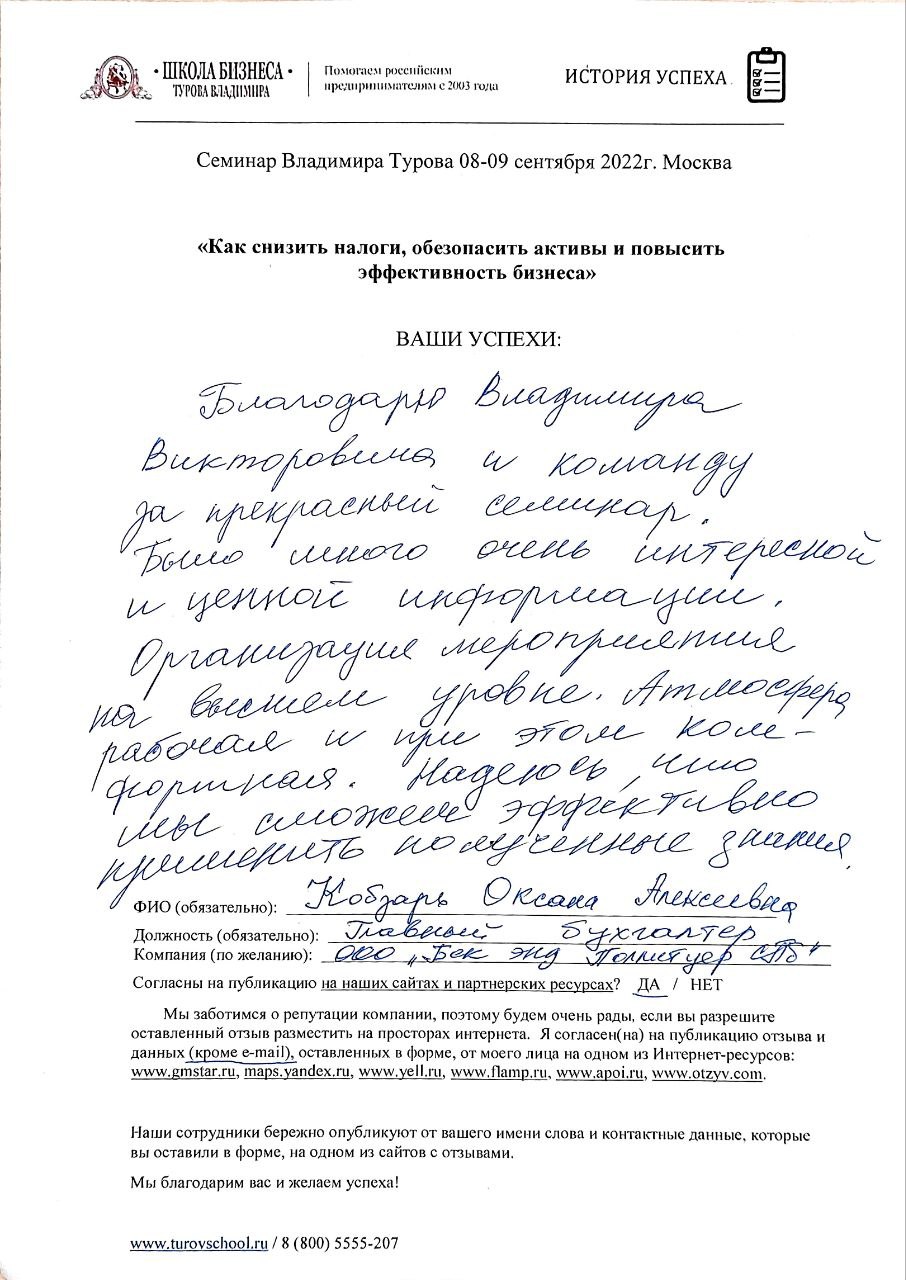 • ШКОЛА БИЗНЕСА •
ТУРОВА ВЛАДИМИРА
Помогаем российским
предпринимателям с 2003 года
ИСТОРИЯ УСПЕХА
Семинар Владимира Турова 08-09 сентября 2022г. Москва
«Как снизить налоги, обезопасить активы и повысить
эффективность бизнеса»
ВАШИ УСПЕХИ:
Благодарю Владимира
Викторовича и команду
за прекрасный семинар.
Было много очень интересной
и ценной информации.
Организация мероприятия
на высшем уровне. Атмосфера
рабочая и при этом ком-
фортная. Надеюсь, что
мы сможем эффективно
применить полученные знания.
ФИО (обязательно): Кобзарь Оксана Алексеевна
Должность (обязательно): Главный бухгалтер
Компания (по желанию): ООО „Бек энд Поллитцер СПб"
Согласны на публикацию на наших сайтах и партнерских ресурсах? ДА / НЕТ
Мы заботимся о репутации компании, поэтому будем очень рады, если вы разрешите
оставленный отзыв разместить на просторах интернета. Я согласен(на) на публикацию отзыва и
данных (кроме e-mail), оставленных в форме, от моего лица на одном из Интернет-ресурсов:
www.gmstar.ru, maps.yandex.ru, www.yell.ru, www.flamp.ru, www.apoi.ru, www.otzyv.com.
Наши сотрудники бережно опубликуют от вашего имени слова и контактные данные, которые
вы оставили в форме, на одном из сайтов с отзывами.
Мы благодарим вас и желаем успеха!
www.turovschool.ru / 8 (800) 5555-207